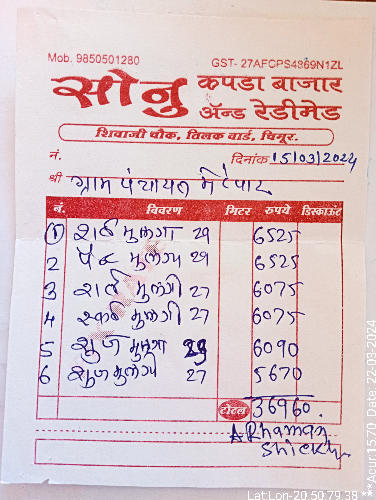 Mob. 9850501280 GST- 27AFCPS4869N1ZL
सोनु कपडा बाजार
ॲन्ड रेडीमेड
शिवाजी चौक, तिलक वार्ड, चिमूर.
नं. दिनांक 15/03/2024
श्री ग्राम पंचायत
नं. विवरण मिटर रुपये डिस्काऊंट
1 शर्ट मुलगा 29 6525
2 पँट मुलगा 29 6525
3 शर्ट मुलगी 27 6075
4 स्कर्ट मुलगी 27 6075
5 शुज मुलगा 29 6090
6 शुज मुलगी 27 5670
टोटल 36960.
ARhaman
Shiekh
Lat Lon-20.50:79.38
**Acur:1570 Date: 22-03-2024